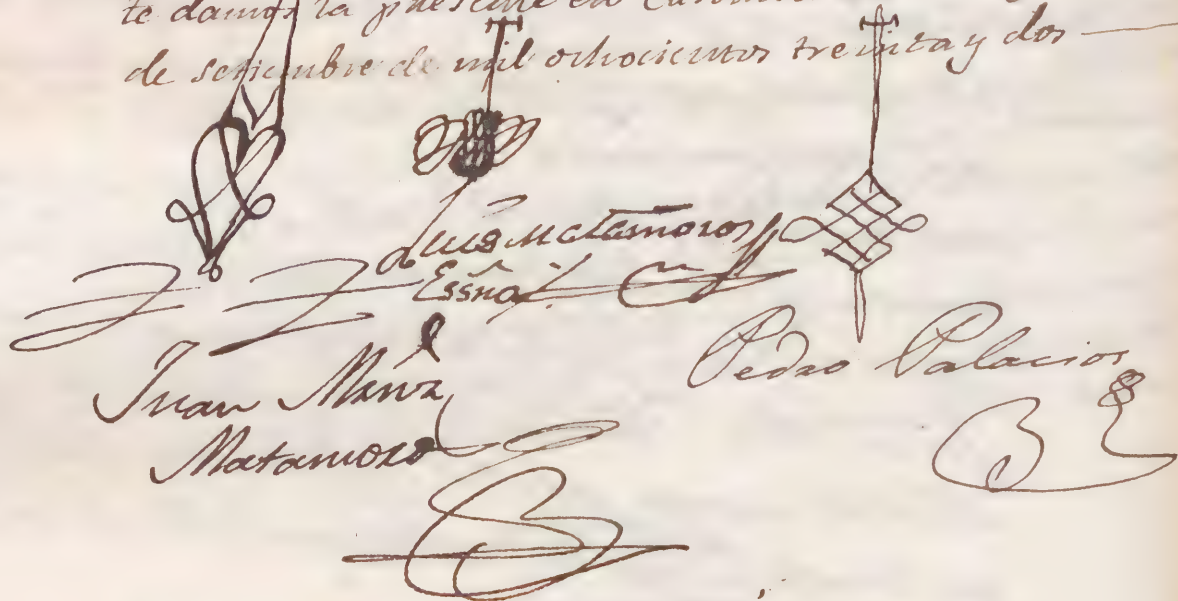 te damos la presente en
de setiembre de mil ochocientos treinta y dos
Luis Matamoros
Essno
Juan
Matamoro
Pedro Palacios